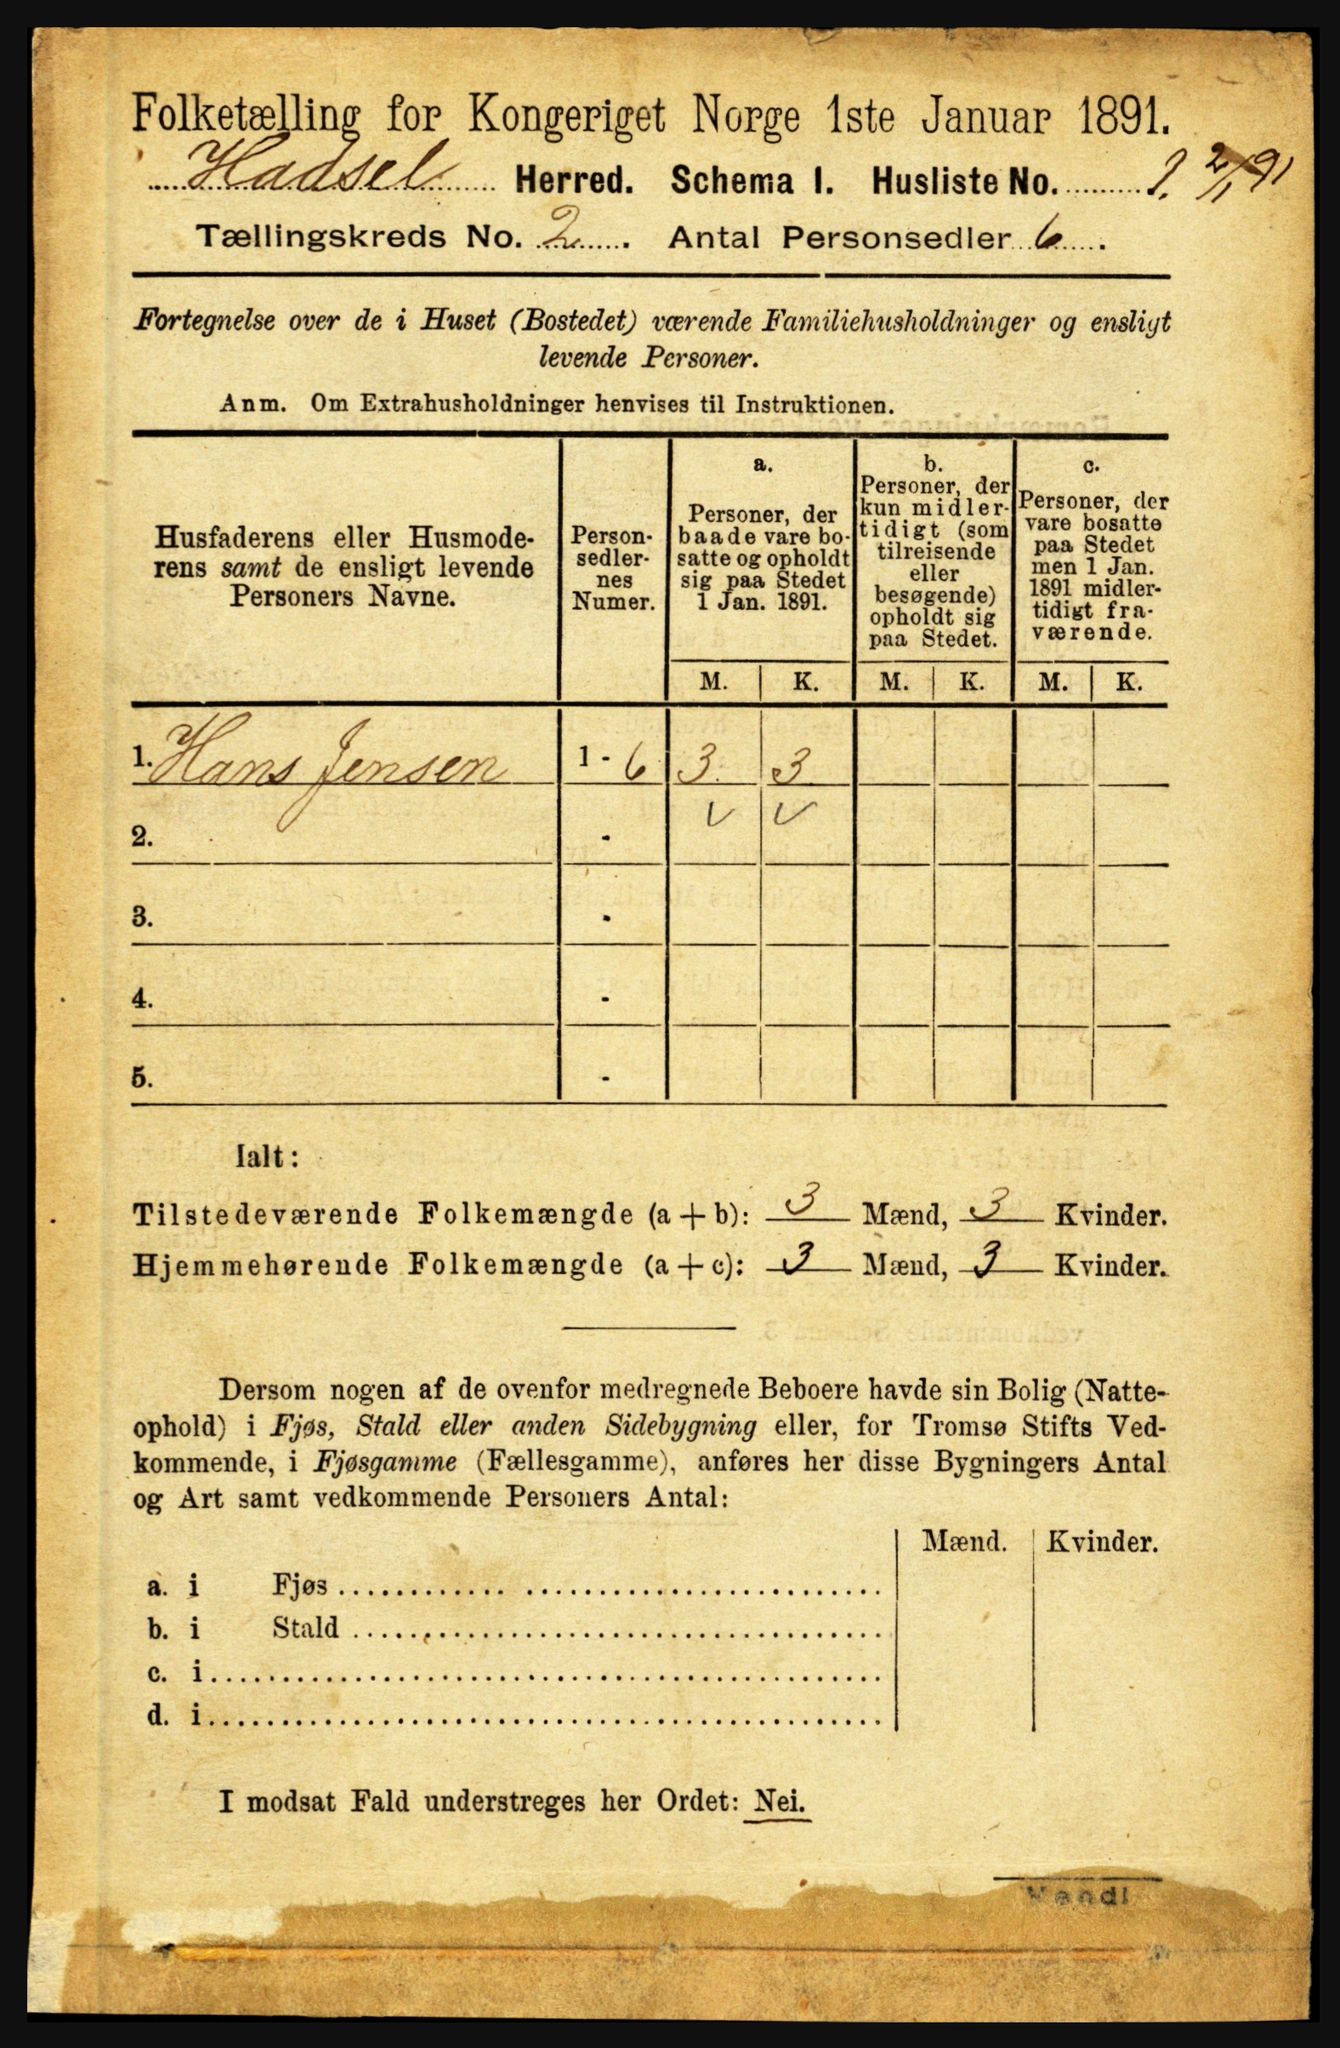 Folketælling for Kongeriget Norge 1ste Januar 1891.
Hadsel Herred. Schema 1. Husliste No. 1. 2/1 91
Tællingskreds No. 2. Antal Personsedler 6.
Fortegnelse over de i Huset (Bostedet) værende Familiehusholdninger og ensligt
levende Personer.
Anm. Om Extrahusholdninger henvises til Instruktionen.
Husfaderens eller Husmode-
rens samt de ensligt levende
Personers Navne.
Person-
sedler-
nes
Numer.
a.
Personer, der
baade vare bo-
satte og opholdt
sig paa Stedet
1 Jan. 1891.
b.
Personer, der
kun midler-
tidigt (som
tilreisende
eller
besøgende)
opholdt sig
paa Stedet.
c.
Personer, der
vare bosatte
paa Stedet
men 1 Jan.
1891 midler-
tidigt fra-
værende.
M. K. M. K. M. K.
1. Hans Jensen 1 - 6 3 3
2. - v v
3. -
4. -
5. -
Ialt:
Tilstedeværende Folkemængde (a + b): 3 Mænd, 3 Kvinder.
Hjemmehørende Folkemængde (a + c): 3 Mænd, 3 Kvinder.
Dersom nogen af de ovenfor medregnede Beboere havde sin Bolig (Natte-
ophold) i Fjøs, Stald eller anden Sidebygning eller, for Tromsø Stifts Ved-
kommende, i Fjøsgamme (Fællesgamme), anføres her disse Bygningers Antal
og Art samt vedkommende Personers Antal:
Mænd. Kvinder.
a. i Fjøs
b. i Stald
c. i
d. i
I modsat Fald understreges her Ordet: Nei.
Vend!